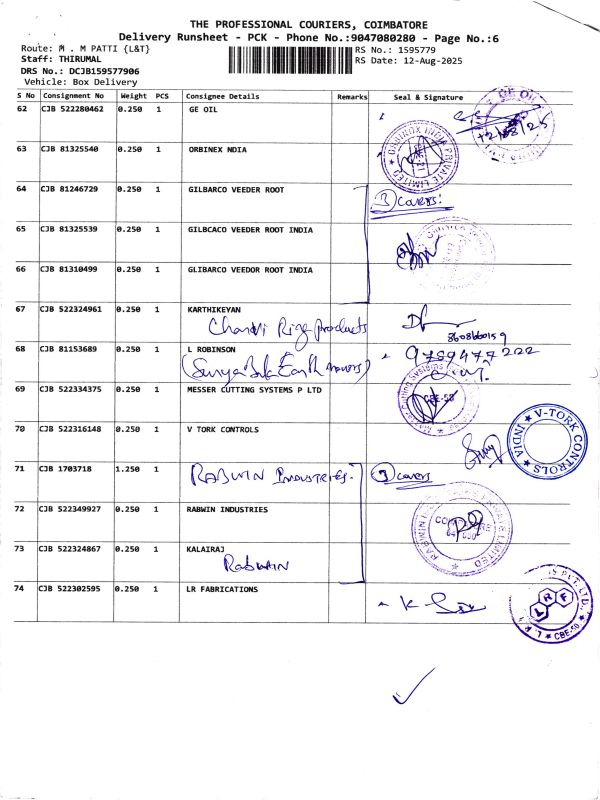 THE PROFESSIONAL COURIERS, COIMBATORE
Delivery Runsheet - PCK - Phone No.:9047080280 - Page No.:6
Route: M . M PATTI {L&T}
RS No.: 1595779
Staff: THIRUMAL
RS Date: 12-Aug-2025
DRS No.: DCJB159577906
Vehicle: Box Delivery
S No Consignment No Weight PCS Consignee Details Remarks Seal & Signature
62 CJB 522280462 0.250 1 GE OIL
GE OIL
12/08/25
63 CJB 81325540 0.250 1 ORBINEX NDIA
ORBINOX INDIA PRIVATE LIMITED
64 CJB 81246729 0.250 1 GILBARCO VEEDER ROOT
3 covers.
65 CJB 81325539 0.250 1 GILBCACO VEEDER ROOT INDIA
66 CJB 81310499 0.250 1 GLIBARCO VEEDOR ROOT INDIA
67 CJB 522324961 0.250 1 KARTHIKEYAN
products
8608660159
68 CJB 81153689 0.250 1 L ROBINSON
9789477222
(Surya Sub Earth movers)
69 CJB 522334375 0.250 1 MESSER CUTTING SYSTEMS P LTD
CBE-58
70 CJB 522316148 0.250 1 V TORK CONTROLS
V-TORK CONTROLS INDIA
71 CJB 1703718 1.250 1 RABWIN INDUSTRIES.
3 covers
72 CJB 522349927 0.250 1 RABWIN INDUSTRIES
RABWIN PRIVATE LIMITED
73 CJB 522324867 0.250 1 KALAIRAJ
RABWIN
74 CJB 522302595 0.250 1 LR FABRICATIONS
LRF
PVT. LTD.
CBE-50